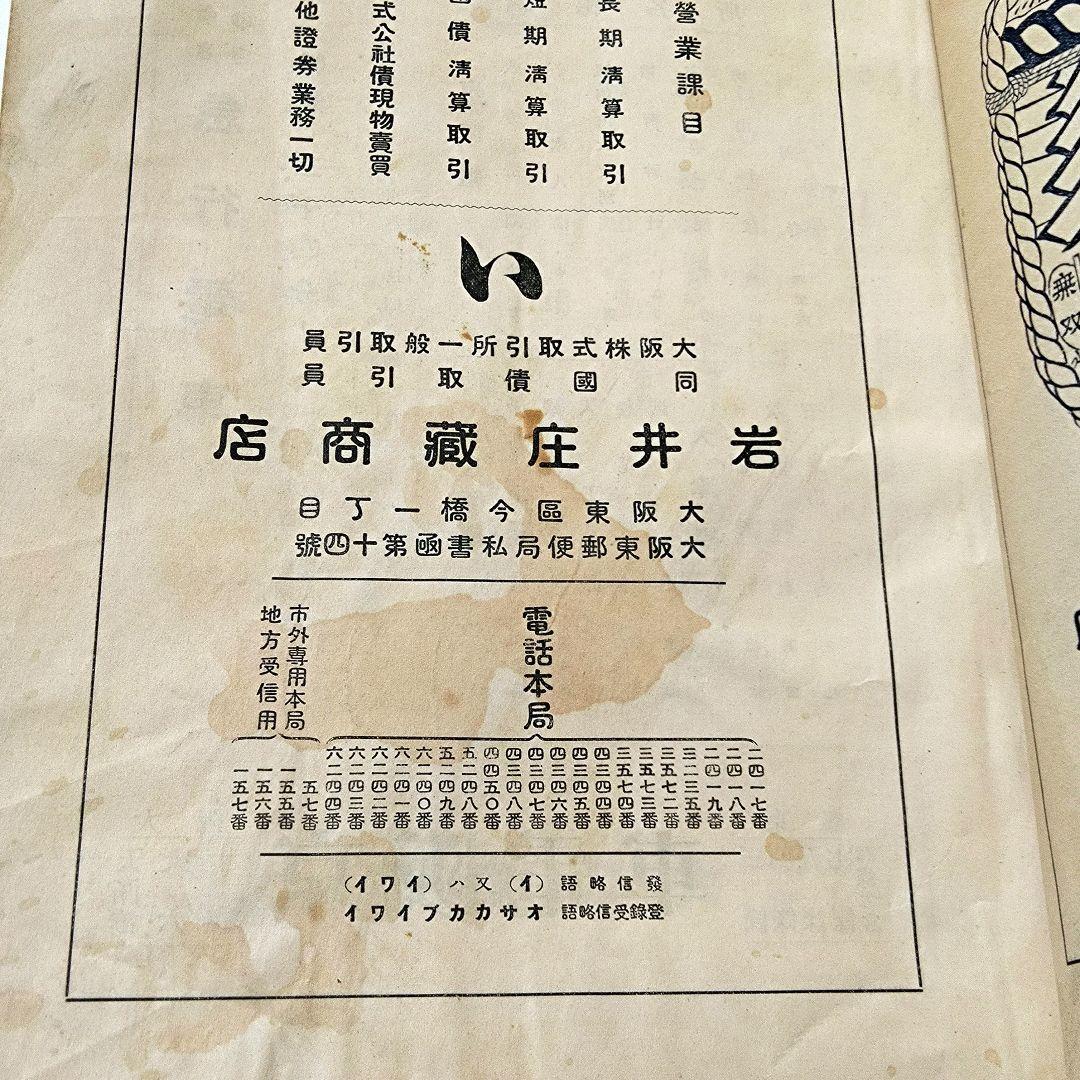 營業課目
長期清算取引
短期清算取引
債清算取引
式公社債現物賣買
他證券業務一切
い
大阪株式取引所一般取引員
同國債取引員
岩井庄藏商店
大阪東區今橋一丁目
大阪東郵便局私書凾第十四號
電話本局
二四一七番
二四一八番
二四一九番
三二三五番
三五七二番
三五七三番
三五七四番
四三四四番
四三四五番
四三四六番
四三四七番
四三四八番
四四五〇番
五二四八番
五二四九番
六二四〇番
六二四一番
六二四二番
六二四三番
六二四四番
市外專用本局
地方受信用
五七番
一五五番
一五六番
一五七番
發信略語 (イ) 又ハ (イワイ)
登錄受信略語 オサカカブイワイ
無双